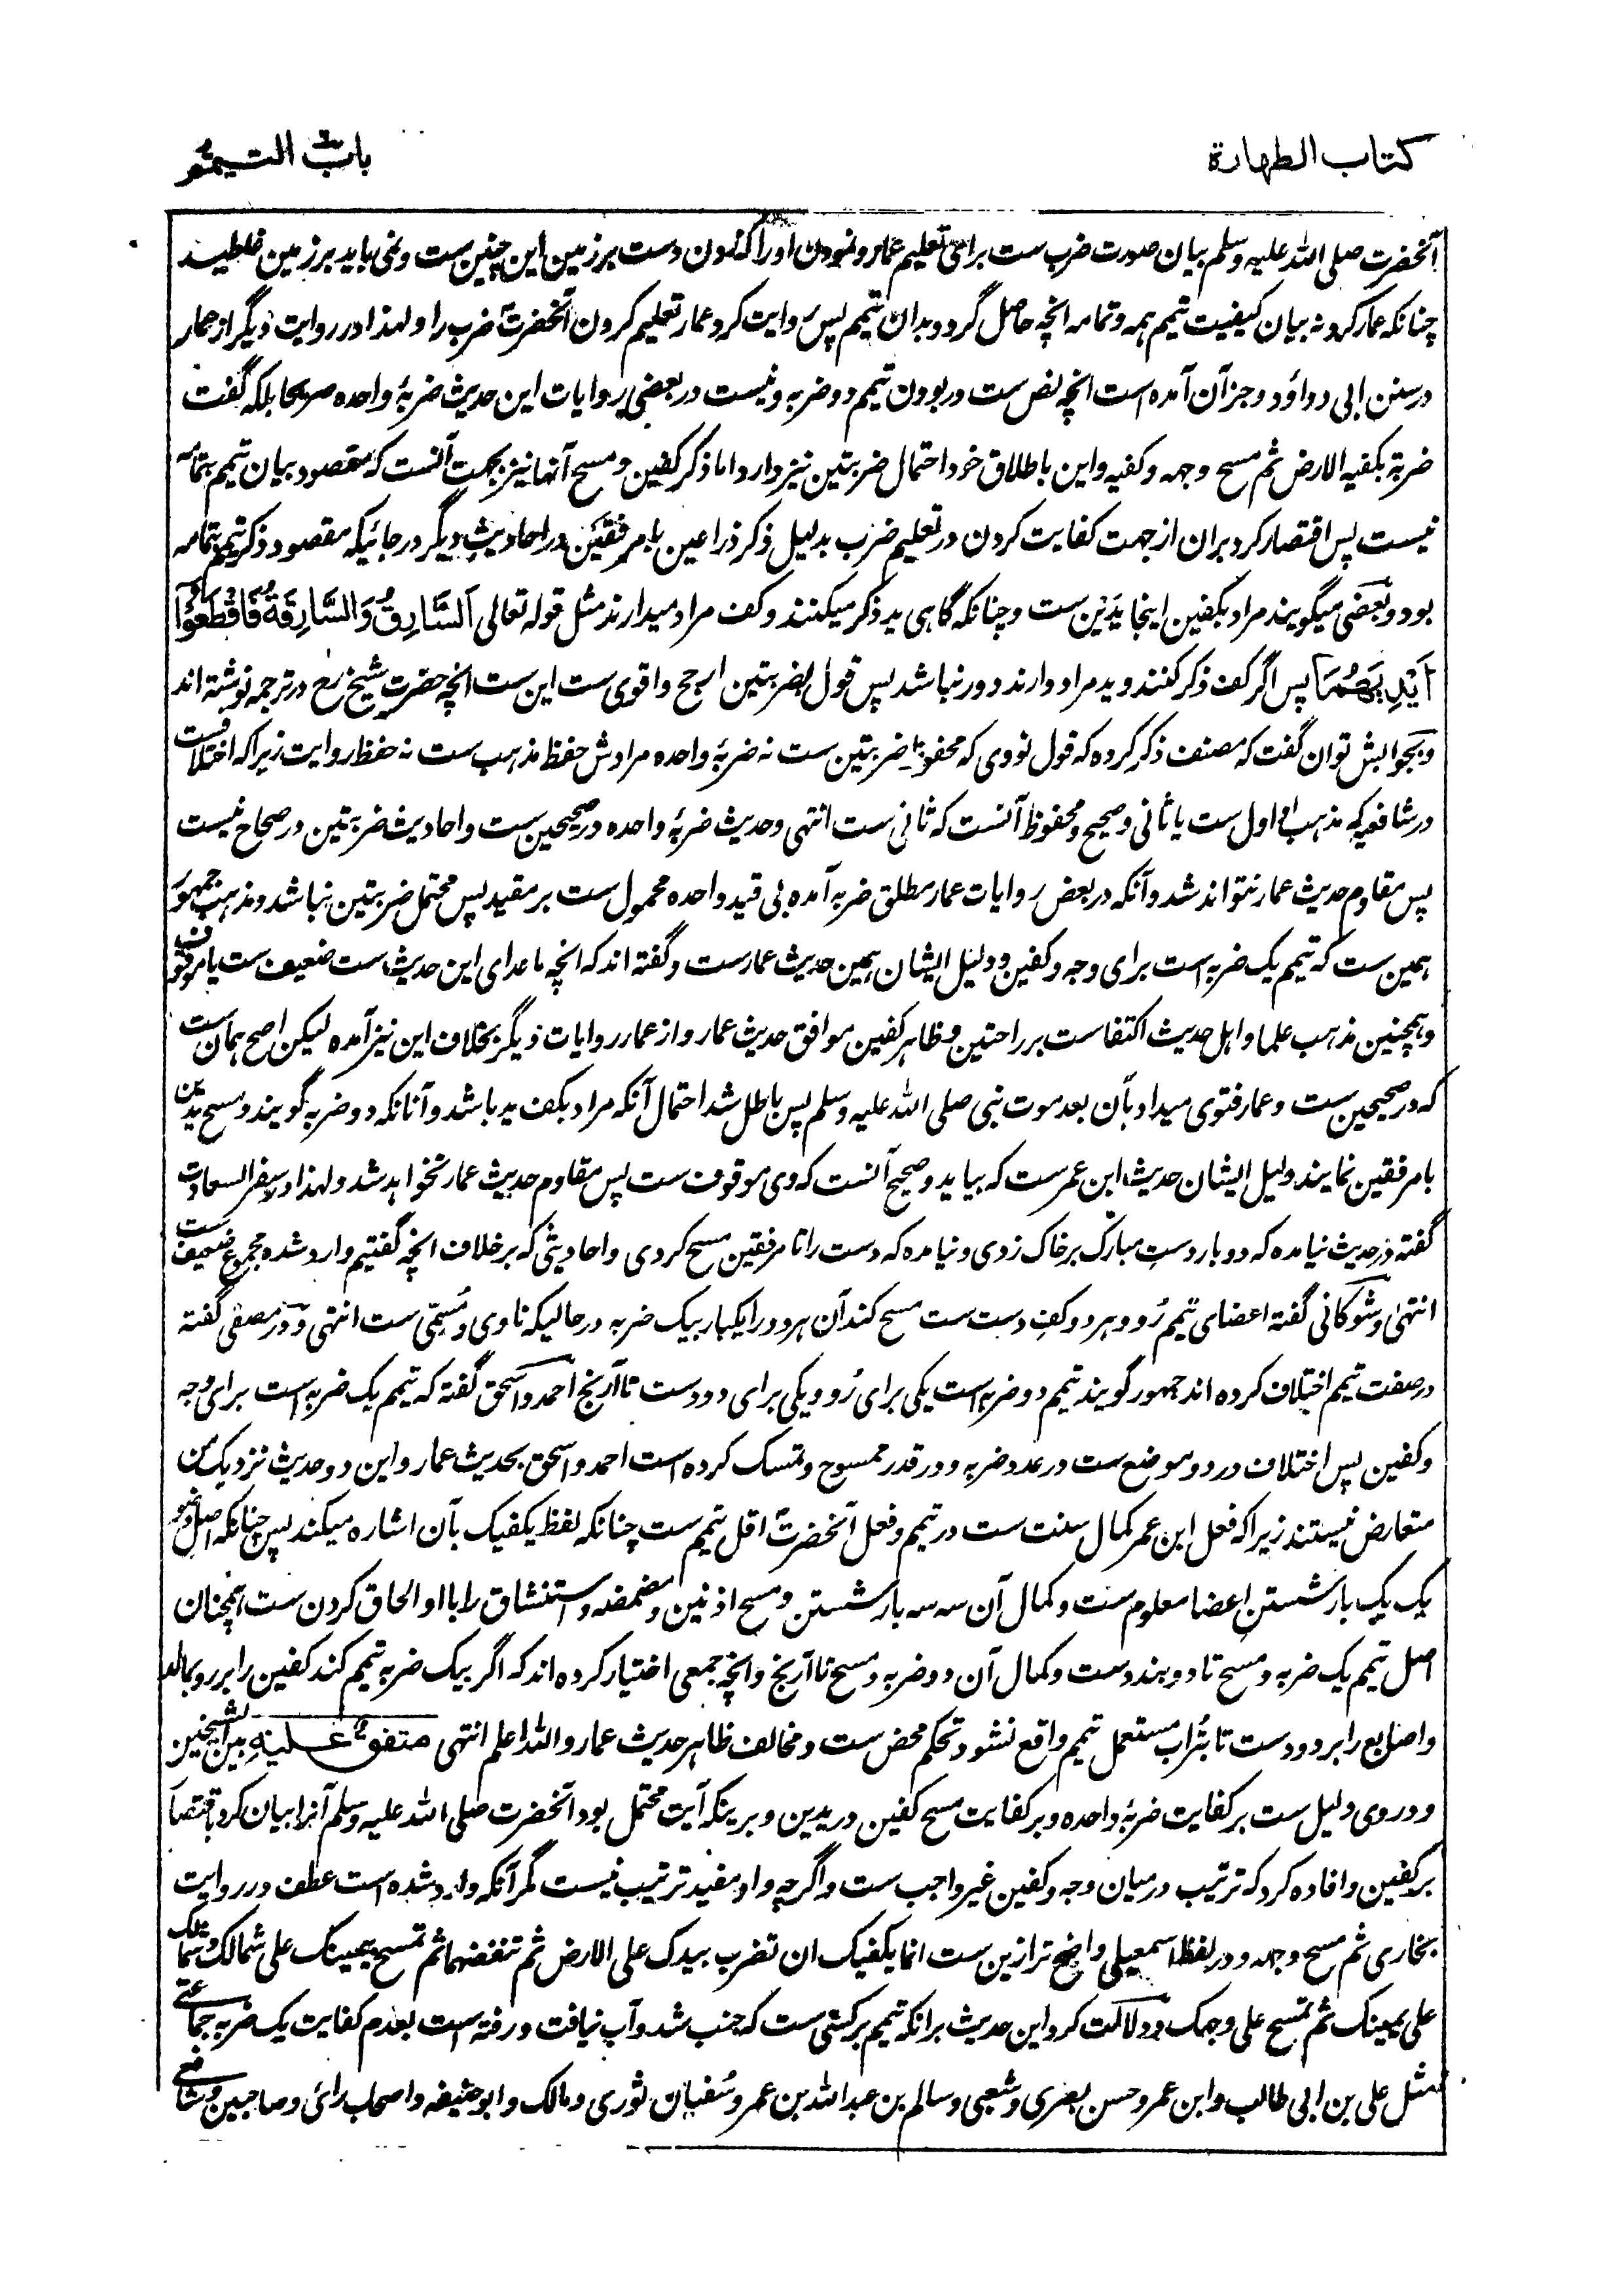 كتاب الطهارة
باب التيمم
آنحضرت صلی الله علیه وسلم بیان صورت ضرب ست برای تعلیم عمار و نمودن او را که زدن دست بر زمین این چنین ست و نمی باید بر زمین غلطید
چنانکه عمار کرد نه بیان کیفیت تیمم همه و تمامه انچه حاصل گردد بدان تیمم پس روایت کرد عمار تعلیم کردن آنحضرت ضرب را و لهذا در روایت دیگر از عمار
در سنن ابی دداؤد و جز آن آمده است انچه نص ست در بودن تیمم دو ضربه و نیست در بعضی روایات این حدیث ضربۀ واحده صریحا بلکه گفت
ضربة بکفیه الارض ثم مسح وجهه و کفیه و این باطلاق خود احتمال ضربتین نیز دارد اما ذکر کفین و مسح آنها نیز بجهت آنست که مقصود بیان تیمم بتمامه
نیست پس اقتصار کرد بران از جهت کفایت کردن در تعلیم ضرب بدلیل ذکر ذراعین با مرفقین در احادیث دیگر در جائیکه مقصود ذکر تیمم بتمامه
بود و بعضی میگویند مراد بکفین اینجا یدین ست و چنانکه گاهی ید ذکر میکنند و کف مراد میدارند مثل قوله تعالی اَلسَّارِقُ وَالسَّارِقَةُ فَاقْطَعُوْا
اَیْدِیَهُمَا پس اگر کف ذکر کنند و ید مراد دارند دور نباشد پس قول بضربتین ارجح و اقوی ست این ست انچه حضرت شیخ رح در ترجمه نوشته اند
و بجوابش توان گفت که مصنف ذکر کرده که قول نووی که محفوظ ضربتین ست نه ضربۀ واحده مرادش حفظ مذهب ست نه حفظ روایت زیرا که اختلاف ست
در شافعیه که مذهب اول ست یا ثانی و صحیح و محفوظ آنست که ثانی ست انتهی و حدیث ضربۀ واحده در صحیحین ست و احادیث ضربتین در صحاح نیست
پس مقاوم حدیث عمار نتواند شد و آنکه در بعض روایات عمار مطلق ضربه آمده بی قید واحده محمول ست بر مقید پس محتمل ضربتین نباشد و مذهب جمهور
همین ست که تیمم یک ضربه است برای وجه و کفین و دلیل ایشان همین حدیث عمارست و گفته اند که انچه ماعدای این حدیث ست ضعیف ست یا موقوف
و همچنین مذهب علما و اهل حدیث اکتفاست بر راحتین و ظاهر کفین موافق حدیث عمار و از عمار روایات دیگر بخلاف این نیز آمده لیکن اصح همان ست
که در صحیحین ست و عمار فتوی میداد بآن بعد موت نبی صلی الله علیه وسلم پس باطل شد احتمال آنکه مراد بکف ید باشد و آنانکه دو ضربه گویند و مسح یدین
با مرفقین نمایند دلیل ایشان حدیث ابن عمر ست که بیاید و صحیح آنست که وی موقوف ست پس مقاوم حدیث عمار نخواهد شد و لهذا در سفر السعادت
گفته در حدیث نیامده که دو بار دست مبارک بر خاک زدی و نیامده که دست را تا مرفقین مسح کردی و احادیثی که بر خلاف انچه گفتیم وارد شده مجموع ضعیف ست
انتهی و شوکانی گفته اعضای تیمم رُو و هر دو کفِ دست ست مسح کند آن هر دو را یکبار بیک ضربه در حالیکه ناوی و مُسمّی ست انتهی و در مصفی گفته
در صفت تیمم اختلاف کرده اند جمهور گویند تیمم دو ضربه است یکی برای رُو و یکی برای دو دست تا آرنج احمد و اسحق گفته که تیمم یک ضربه است برای وجه
و کفین پس اختلاف در دو موضع ست در عدد ضربه و در قدر ممسوح و تمسک کرده است احمد و اسحق بحدیث عمار و این دو حدیث نزدیک من
متعارض نیستند زیرا که فعل ابن عمر کمال سنت ست در تیمم و فعل آنحضرت اقل تیمم ست چنانکه لفظ یکفیک بآن اشاره میکند پس چنانکه اصل وضو
یک یک بار شستنِ اعضا معلوم ست و کمال آن سه سه بار شستن و مسح اذنین و مضمضه و استنشاق را با او الحاق کردن ست همچنان
اصل تیمم یک ضربه و مسح تا دو بند دست و کمال آن دو ضربه و مسح تا آرنج و انچه جمعی اختیار کرده اند که اگر بیک ضربه تیمم کند کفین را بر رو بمالد
و اصابع را بر دو دست تا بتُراب مستعمل تیمم واقع نشود تحکم محض ست و مخالف ظاهر حدیث عمار و الله اعلم انتهی متفق علیه بین الشیخین
و در وی دلیل ست بر کفایت ضربۀ واحده و بر کفایت مسح کفین در یدین و بر ینکه آیت محتمل بود آنحضرت صلی الله علیه وسلم آنرا بیان کرد باقتصار
بر کفین و افاده کرد که ترتیب درمیان وجه و کفین غیر واجب ست و اگرچه واو مفید ترتیب نیست مگر آنکه وارد شده است عطف در روایت
بخاری ثم مسح وجهه و در لفظ اسمعیلی واضح تر ازین ست انما یکفیک ان تضرب بیدک علی الارض ثم تنفضهما ثم تمسح بیمینک علی شمالک و شمالک
علی یمینک ثم تمسح علی وجهک و دلالت کرد این حدیث برانکه تیمم بر کسی ست که جنب شد و آب نیافت و رفته است بعدم کفایت یک ضربه جماعتی
مثل علی بن ابی طالب و ابن عمر و حسن بصری و شعبی و سالم بن عبدالله بن عمر و سُفیان ثوری و مالک و ابو حنیفه و اصحاب رائی و صاحبین و شافعی